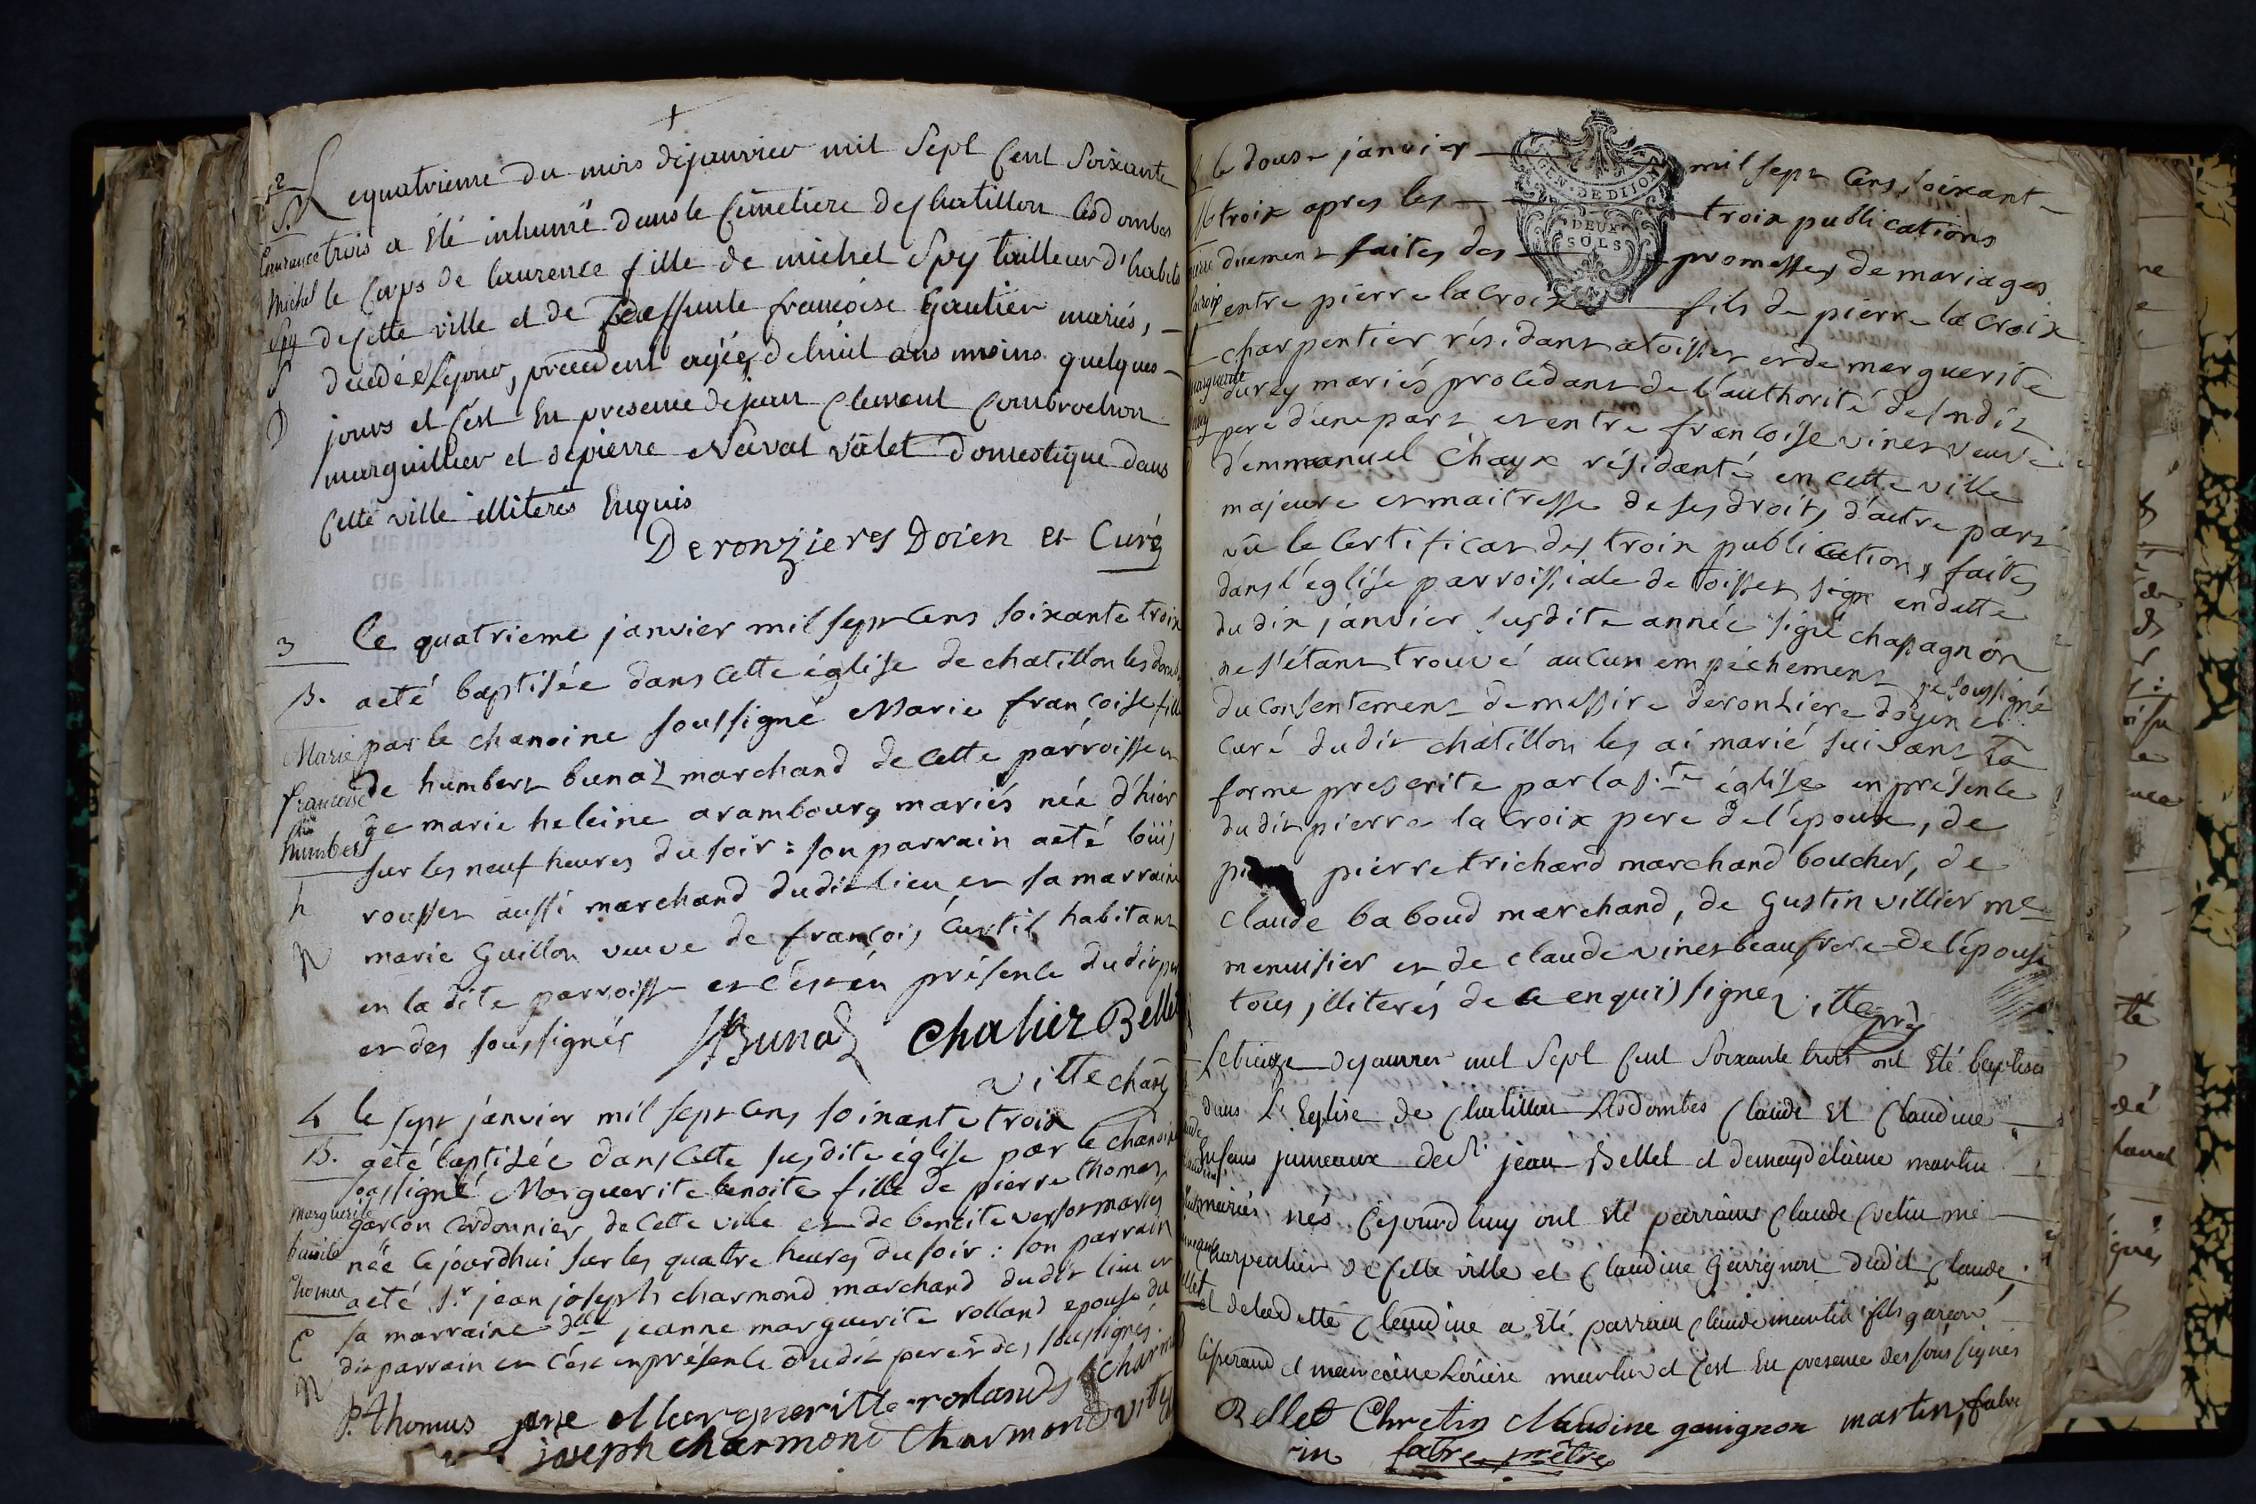 2
S.
Lequatrieme du mois dejanvier mil Sept Cent Soixante
Laurence trois a Été inhumé dans le Cimetiere deChatillon lesdombes
Michel le Corps de laurence fille de michel Spy tailleur d'habits
Spy de Cette ville et de deffunte francoise Gautier mariés,
decedée Lejour, precedent agéé dehuit ans moins quelques
jours et C'est En presence dejean Clement Combrochon
marguillier et depierre Naval valet domestique dans
Cette ville illiterés Enquis
Deronzieres Doien et Curé
3 Le quatrieme janvier mil sept cens soixante trois
B. a eté baptisée dans cette église de chatillon les domb
Marie par le chanoine soussigné Marie françoise fille
françoise de humbert bunaz marchand de cette parroisse et
humbert de marie heleine arambourg mariés née d'hier
sur les neuf heures du soir : son parrain a eté loüis
h rousset aussi marchand dudit lieu et sa marraine
N marie Guillon veuve de françois Curtil habitant
en la dite parroisse et c'est en présence dudit per
et des soussignés Bunaz Chalier Bellet
vitte chan
4 le sept janvier mil sept cens soixante trois
B. a eté baptisée dans cette susdite église par le chanoine
soussigné Marguerite benoite fille de pierre thomas
Marguerite garçon cordonnier de cette ville et de benoite mariés
née cejourdhui sur les quatre heures du soir : son parrain
thomas a eté Sr jean joseph charmond marchand dudit lieu et
C sa marraine dlle jeanne marguerite rolland epouse du
N dit parrain et c'est en présence dudit pere et des soussignés.
P. thomas jane Margueritte rolland
joseph charmond Charmond vitte
le douze janvier mil sept cens soixante
trois apres les trois publications
duement faites des promesses de mariages
entre pierre la croix fils de pierre la croix
charpentier résidant a toissey et de marguerite
durey mariés procédant de l'authorité de sondit
pere d'une part et entre françoise vinet veuve
d'emmanuel Chayx résidante en cette ville
majeure et maitresse de ses droits d'autre part
vû le certificat des trois publications faites
dans l'église parroissiale de toissey signé en datte
du dix janvier susdite année signé chapagnon
ne s'étant trouvé aucun empéchement je soussigné
du consentement de messire deronziere doyen et
curé dudit chatillon les ai marié suivant la
forme prescrite par la ste église en présence
dudit pierre la croix pere de l'époux, de
pierre trichard marchand boucher, de
claude baboud marchand, de Gustin villier me
menuisier et de claude vinet beaufrere de l'épouse
tous illiterés de ce enquis signé vitte
Letreize dejanvier mil Sept Cent Soixante trois ont Eté baptisés
dans L'Eglise de Chatillon Lesdombes Claude Et Claudine
Enfans jumeaux de Sr jean Bellet et demagdelaine martin
mariés nés Cejourdhuy ont Eté parrains Claude Cretin me
charpentier de Cette ville et Claudine Gavignon dudit Claude;
et deladitte Claudine a Eté parrain Claude martin fils garçon
et maraine Loüise martin et C'est En presence des soussignés
Bellet Chretin Claudine gavignon martin, fabre
fabre prêtre
GEN · DE DIJON
DEUX
SOLS